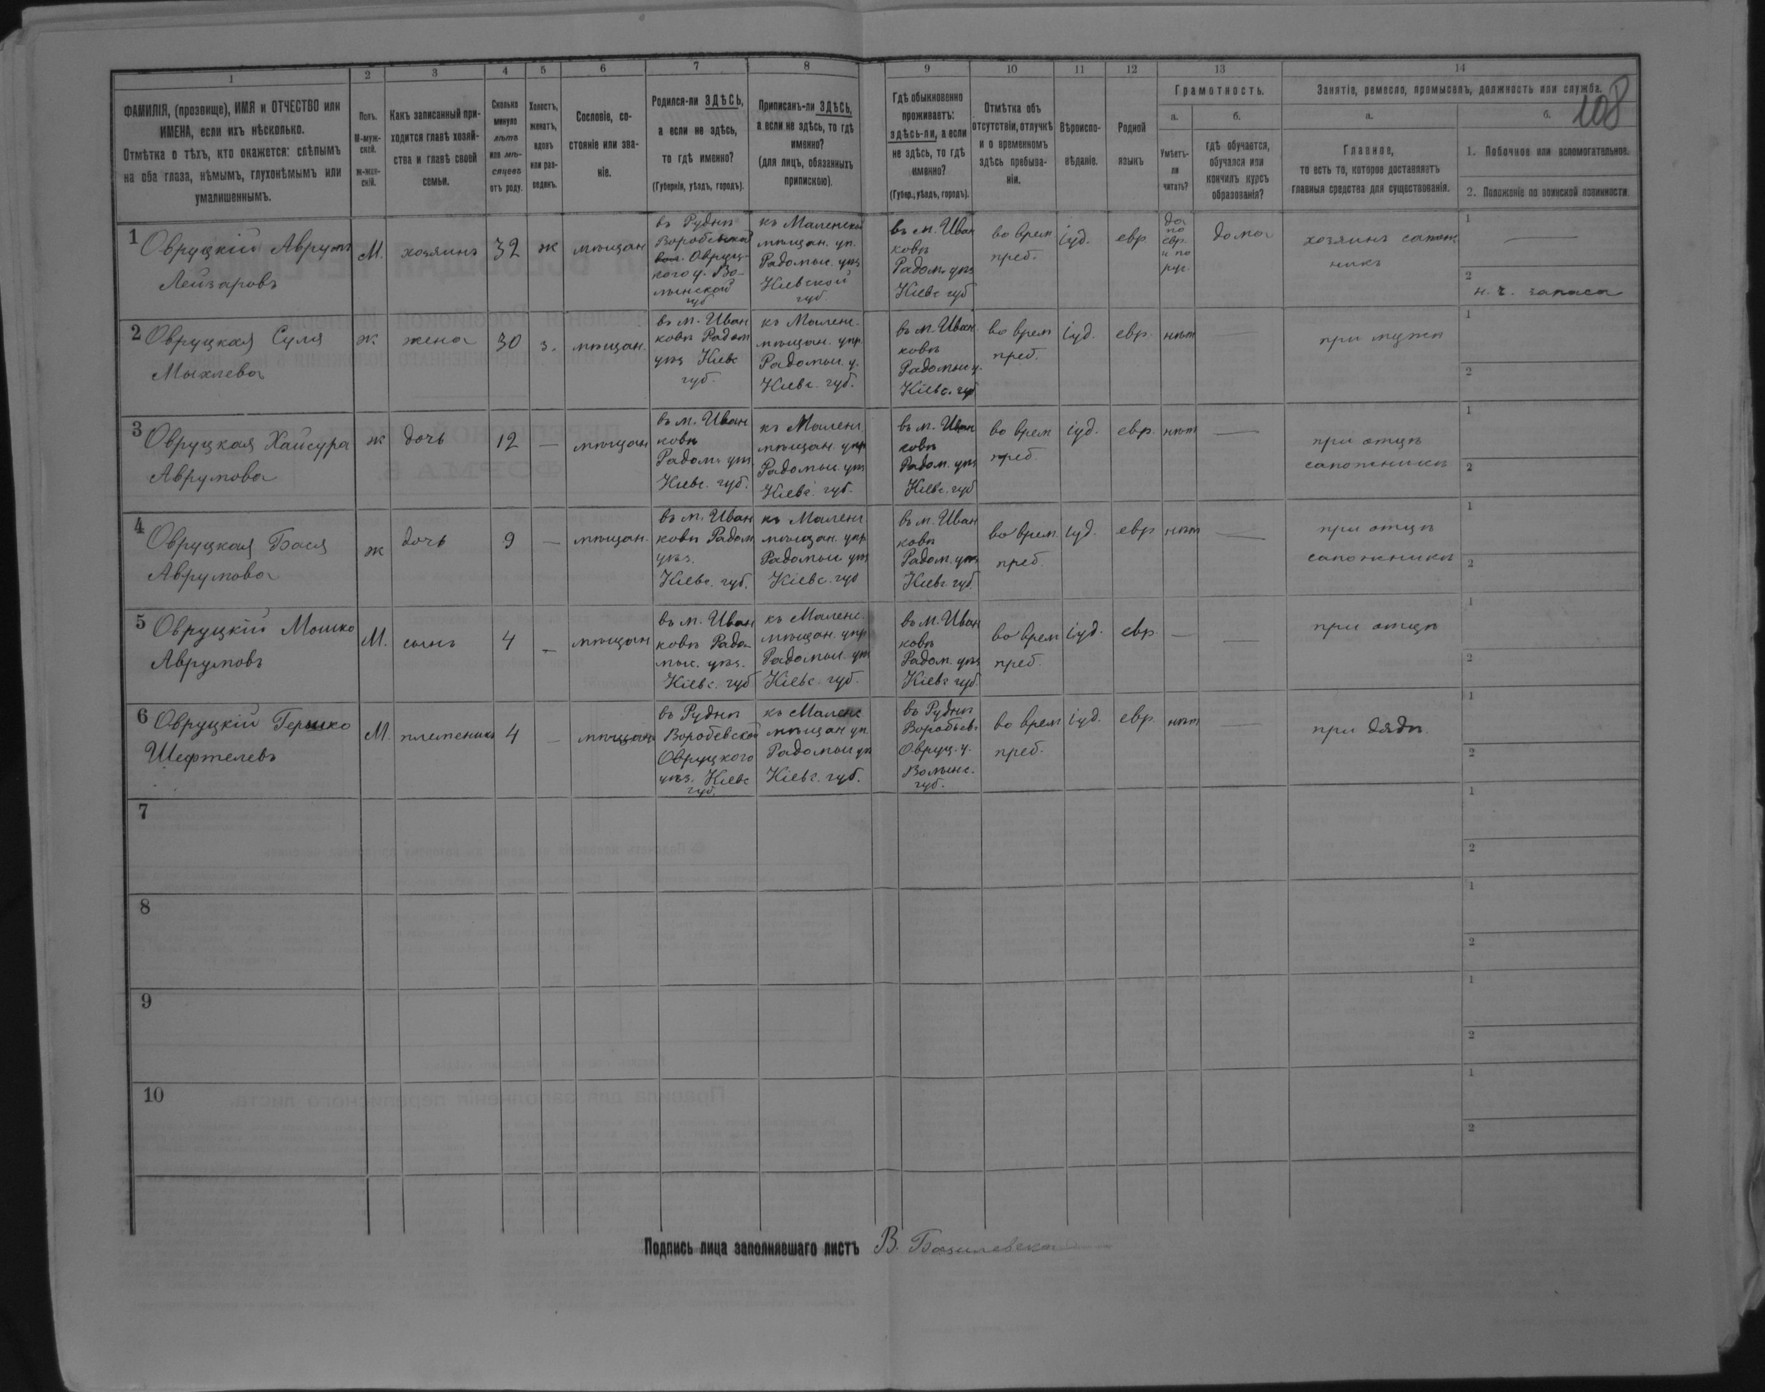 108
1
2
3
4
5
6
7
8
9
10
11
12
13
14
ФАМИЛІЯ, (прозвище), ИМЯ и ОТЧЕСТВО или
ИМЕНА, если ихъ нѣсколько.
Отмѣтка о тѣхъ, кто окажется: слѣпымъ
на оба глаза, нѣмымъ, глухонѣмымъ или
умалишеннымъ.
Полъ.
М-муж-
ской.
ж-жен-
скій.
Какъ записанный при-
ходится главѣ хозяй-
ства и главѣ своей
семьи.
Сколько
минуло
лѣтъ
или мѣ-
сяцевъ
отъ роду.
Холостъ,
женатъ,
вдовъ
или раз-
веденъ.
Сословіе, со-
стояніе или зва-
ніе.
Родился-ли ЗДѢСЬ,
а если не здѣсь,
то гдѣ именно?
(Губернія, уѣздъ, городъ).
Приписанъ-ли ЗДѢСЬ,
а если не здѣсь, то гдѣ
именно?
(для лицъ, обязанныхъ
припискою).
Гдѣ обыкновенно
проживаетъ:
здѣсь-ли, а если
не здѣсь, то гдѣ
именно?
(Губер., уѣздъ, городъ).
Отмѣтка объ
отсутствіи, отлучкѣ
и о временномъ
здѣсь пребыва-
ніи.
Вѣроиспо-
вѣданіе.
Родной
языкъ
Грамотность.
а.
Умѣетъ-
ли
читать?
б.
гдѣ обучается,
обучался или
кончилъ курсъ
образованія?
Занятіе, ремесло, промыселъ, должность или служба.
а.
Главное,
то есть то, которое доставляетъ
главныя средства для существованія.
б.
1. Побочное или вспомогательное.
2. Положеніе по воинской повинности
1
Овруцкій Аврумъ
Лейзаровъ
М.
хозяинъ
32
ж
мѣщан
въ Руднѣ
Овруц-
кого у. Во-
лынской
губ
къ Маленской
мѣщан. уп.
Радомыс. уѣз
Кіевской
губ
въ м. Иван
ковѣ
Радом. уѣз
Кіевс губ
во врем
преб.
іуд.
евр
да
по
евр.
и по
рус.
дома
хозяинъ сапож
никъ
1
2
н. ч. запаса
2
Овруцкая Суля
Мыхлева
ж
жена
30
з.
мѣщан.
въ м. Иван
ковѣ Радом
уѣз Кіевс
губ.
къ Маленс.
мѣщан. упр.
Радомыс. у.
Кіевс. губ.
въ м. Иван.
ковѣ
Радомыс у.
Кіевс. губ
во врем
преб.
іуд.
евр.
нѣт
при мужѣ
1
2
3
Овруцкая Хайсура
Аврумова
ж
дочь
12
—
мѣщан
въ м. Иван
ковѣ
Радом. уѣз
Кіевс. губ.
къ Маленс
мѣщан. упр
Радомыс уѣз
Кіевс. губ.
въ м. Иван
ковѣ
Радом. уѣз
Кіевс. губ
во врем
преб.
іуд.
евр.
нѣт
—
при отцѣ
сапожникѣ
1
2
4
Овруцкая Бася
Аврумова
ж
дочь
9
—
мѣщан.
въ м. Иван
ковѣ Радом
уѣз.
Кіевс. губ.
къ Маленс
мѣщан. упр
Радомыс уѣз
Кіевс. губ
въ м. Иван
ковѣ
Радом. уѣз
Кіевс губ
во врем
преб.
іуд.
евр
нѣт
—
при отцѣ
сапожникѣ
1
2
5
Овруцкій Мошко
Аврумовъ
М.
сынъ
4
—
мѣщан
въ м. Иван
ковѣ Радо-
мыс. уѣз.
Кіевс. губ
къ Маленс.
мѣщан. упр
Радомыс. уѣз
Кіевс. губ.
въ м. Иван
ковѣ
Радом. уѣз
Кіевс губ
во врем
преб.
іуд.
евр.
—
—
при отцѣ
1
2
6
Овруцкій Гершко
Шефтелевъ
М.
племеникъ
4
—
мѣщан
въ Руднѣ
Воробевской
Овруцкого
уѣз. Кіевс
губ.
къ Маленс
мѣщан уп
Радомыс уѣз
Кіевс. губ.
въ Руднѣ
Воробьев.
Овруц. у.
Волынс.
губ.
во врем
преб.
іуд.
евр
нѣт
—
при дядѣ.
1
2
7
1
2
8
1
2
9
1
2
10
1
2
Подпись лица заполнявшаго листъ В.